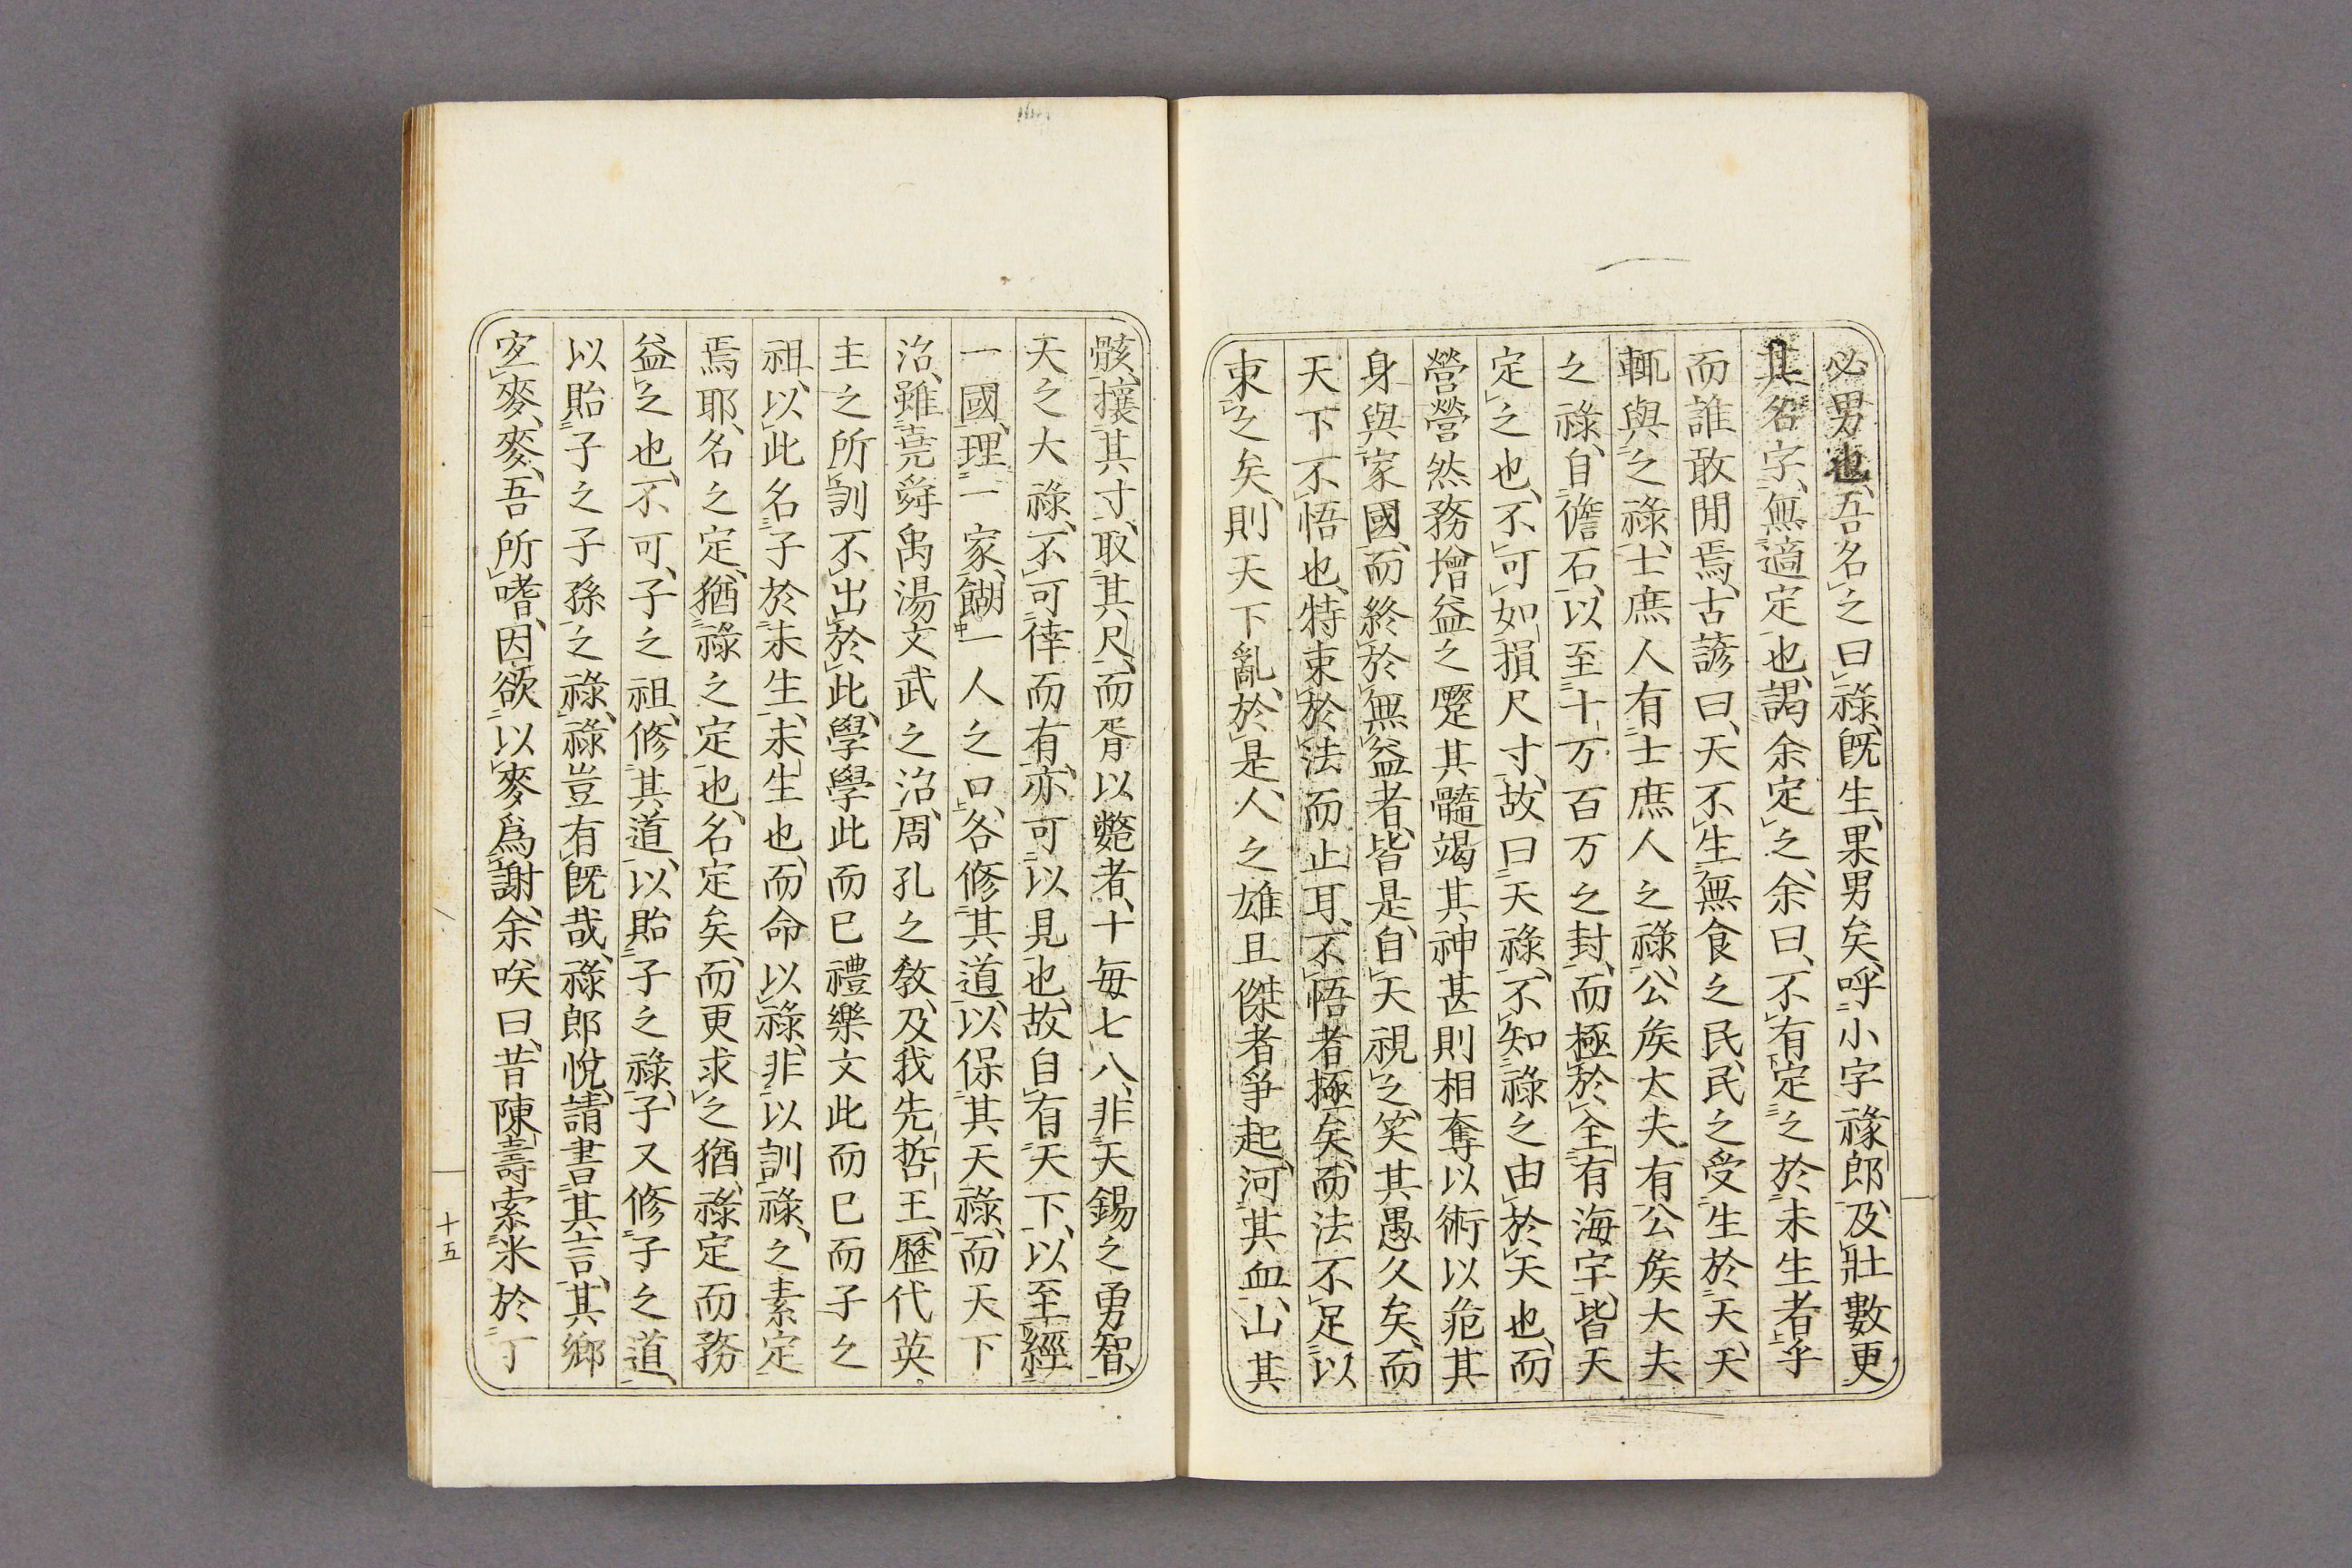 必男也吾名之曰祿既生果男矣呼小字祿郎及壯數更
其名字無適定也謁余定之余曰不有定之於未生者乎
而誰敢閒焉古諺曰天不生無食之民民之受生於天天
輒與之祿士庶人有士庶人之祿公矦大夫有公矦大夫
之祿自儋石以至十万百万之封而極於全有海宇皆天
定之也不可如損尺寸故曰天祿不知祿之由於天也而
營營然務增益之壓其髓竭其神甚則相奪以術以危其
身與家國而終於無益者皆是自天視之笑其愚久矣而
天下不悟也特束於法而止耳不悟者極矣而法不足以
束之矣則天下亂於是人之雄且傑者爭起河其血山其
骸攘其寸取其尺而胥以斃者十每七八非天錫之勇智
天之大祿不可倖而有亦可以見也故自有天下以至經
一國理一家餬一人之口各修其道以保其天祿而天下
治雖堯舜禹湯文武之治周孔之教及我先哲王歷代英
主之所訓不出於此學學此而已禮樂文此而已而子之
祖以此名子於未生未生也而命以祿非以訓祿之素定
焉耶名之定猶祿之定也名定矣而更求之猶祿定而務
益之也不可子之祖修其道以貽子之祿子又修子之道
以貽子之子孫之祿祿豈有既哉祿郎悅請書其言其鄉
宜麥麥吾所嗜因欲以麥爲謝余咲曰昔陳壽索米於丁
十五